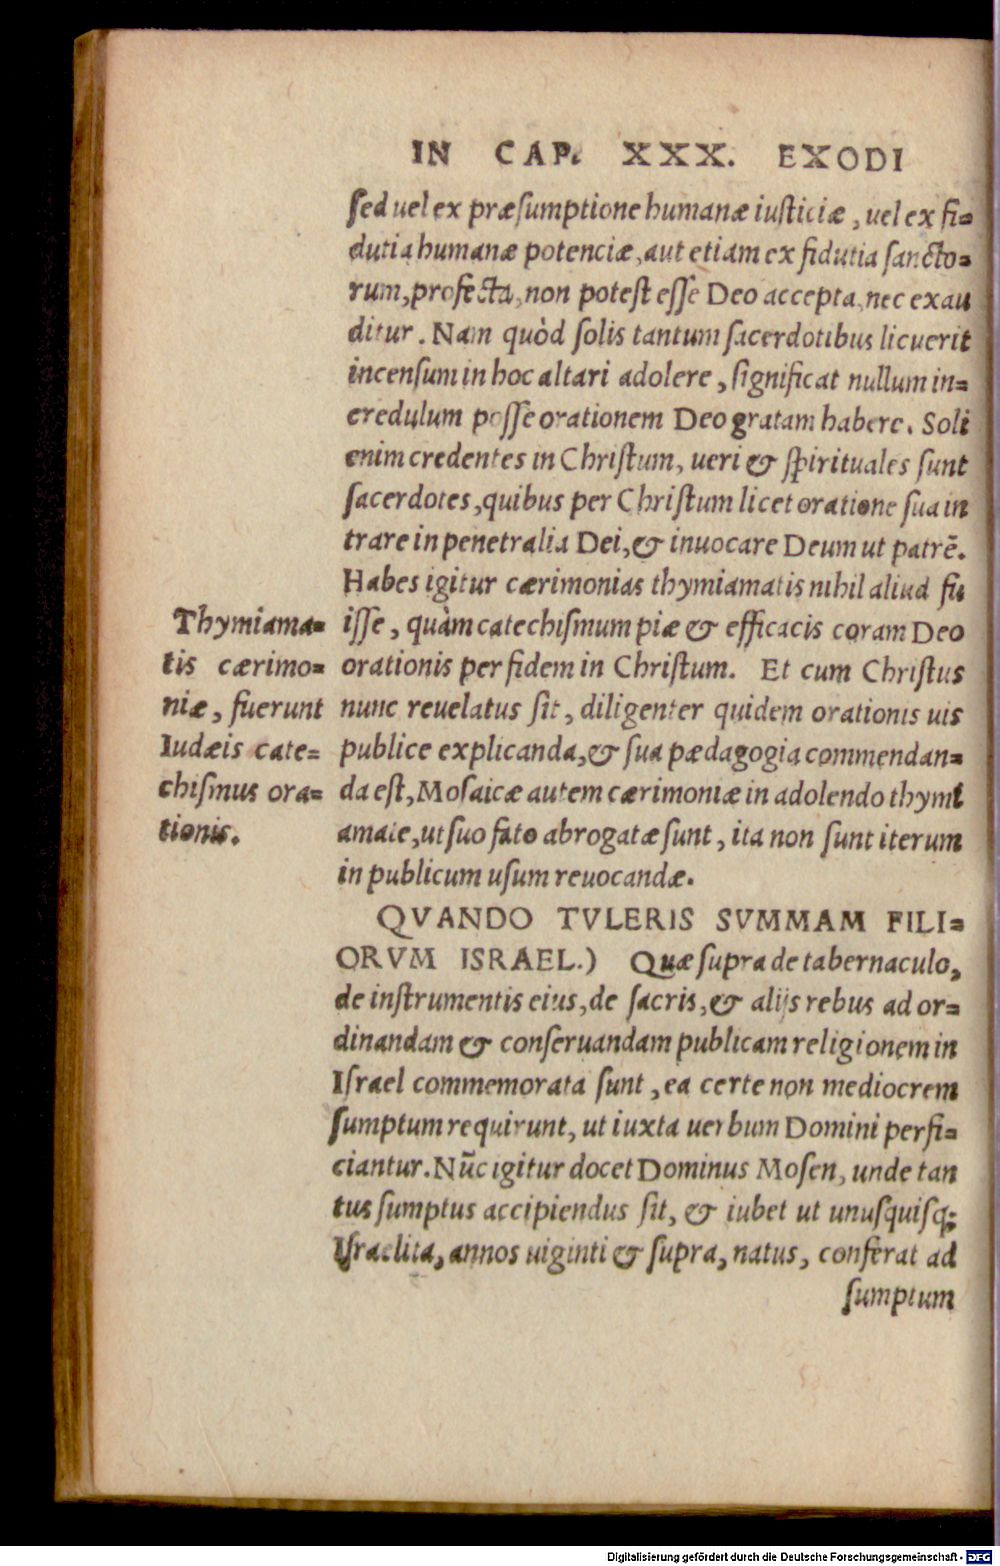 IN CAP. XXX. EXODI
ſed uel ex præſumptione humanæ iuſticiæ, uel ex fi-
dutia humanæ potenciæ, aut etiam ex fidutia ſancto-
rum, profecta, non poteſt eſſe Deo accepta, nec exau
ditur. Nam quòd ſolis tantum ſacerdotibus licuerit
incenſum in hoc altari adolere, ſignificat nullum in-
credulum poſſe orationem Deo gratam habere. Soli
enim credentes in Chriſtum, ueri & ſpirituales ſunt
ſacerdotes, quibus per Chriſtum licet oratione ſua in
trare in penetralia Dei, & inuocare Deum ut patrē.
Habes igitur cærimonias thymiamatis nihil aliud fu
iſſe, quàm catechiſmum piæ & efficacis coram Deo
orationis per fidem in Chriſtum. Et cum Chriſtus
nunc reuelatus ſit, diligenter quidem orationis uis
publice explicanda, & ſua pædagogia commendan-
da eſt, Moſaicæ autem cærimoniæ in adolendo thymi
amate, ut ſuo fato abrogatæ ſunt, ita non ſunt iterum
in publicum uſum reuocandæ.
Thymiama-
tis cærimo-
niæ, fuerunt
Iudæis cate-
chiſmus ora-
tionis.
QVANDO TVLERIS SVMMAM FILI-
ORVM ISRAEL.) Quæ ſupra de tabernaculo,
de inſtrumentis eius, de ſacris, & alijs rebus ad or-
dinandam & conſeruandam publicam religionem in
Iſrael commemorata ſunt, ea certe non mediocrem
ſumptum requirunt, ut iuxta uerbum Domini perfi-
ciantur. Nūc igitur docet Dominus Moſen, unde tan
tus ſumptus accipiendus ſit, & iubet ut unuſquiſq;
Iſraelita, annos uiginti & ſupra, natus, conferat ad
ſumptum
Digitalisierung gefördert durch die Deutsche Forschungsgemeinschaft - DFG